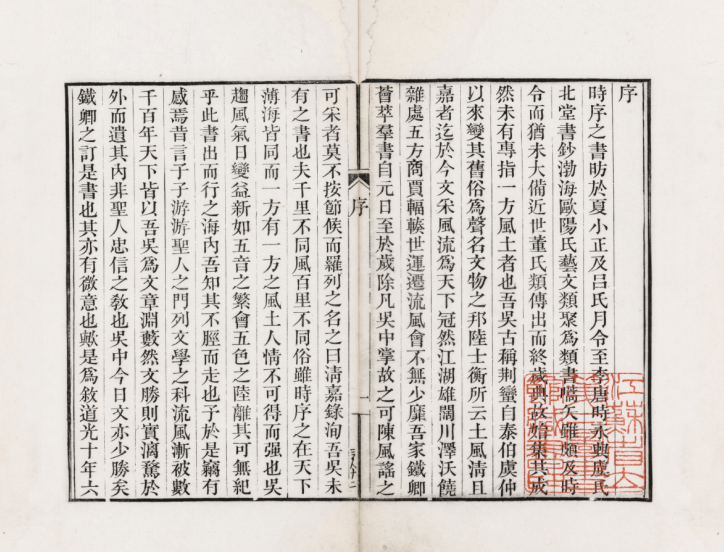 序
時序之書昉於夏小正及呂氏月令至李唐時永興虞氏
北堂書鈔渤海歐陽氏藝文類聚爲類書嚆矢雖頗及時
令而猶未大備近世董氏類傳出而終歲典故始集其成
然未有專指一方風土者也吾吳古稱荆蠻自泰伯虞仲
以來變其舊俗爲聲名文物之邦陸士衡所云土風淸且
嘉者迄於今文采風流爲天下冠然江湖雄闊川澤沃饒
雜處五方商賈輻輳世運遷流風會不無少靡吾家鐵卿
薈萃羣書自元日至於歲除凡吳中掌故之可陳風謠之
序
一
可采者莫不按節候而羅列之名之曰淸嘉錄洵吾吳未
有之書也夫千里不同風百里不同俗雖時序之在天下
薄海皆同而一方有一方之風土人情不可得而强也吳
趨風氣日變益新如五音之繁會五色之陸離其可無紀
乎此書出而行之海內吾知其不脛而走也予於是竊有
感焉昔言子子游游聖人之門列文學之科流風漸被數
千百年天下皆以吾吳爲文章淵藪然文勝則實漓騖於
外而遺其內非聖人忠信之敎也吳中今日文亦少勝矣
鐵卿之訂是書也其亦有微意也歟是爲敘道光十年六